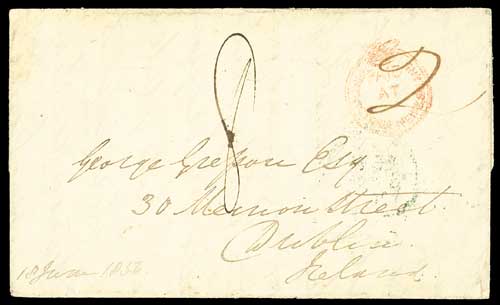 8
2
AT
George Grepson Esq
30 Merrion Street
Dublin
Ireland
18 June 183